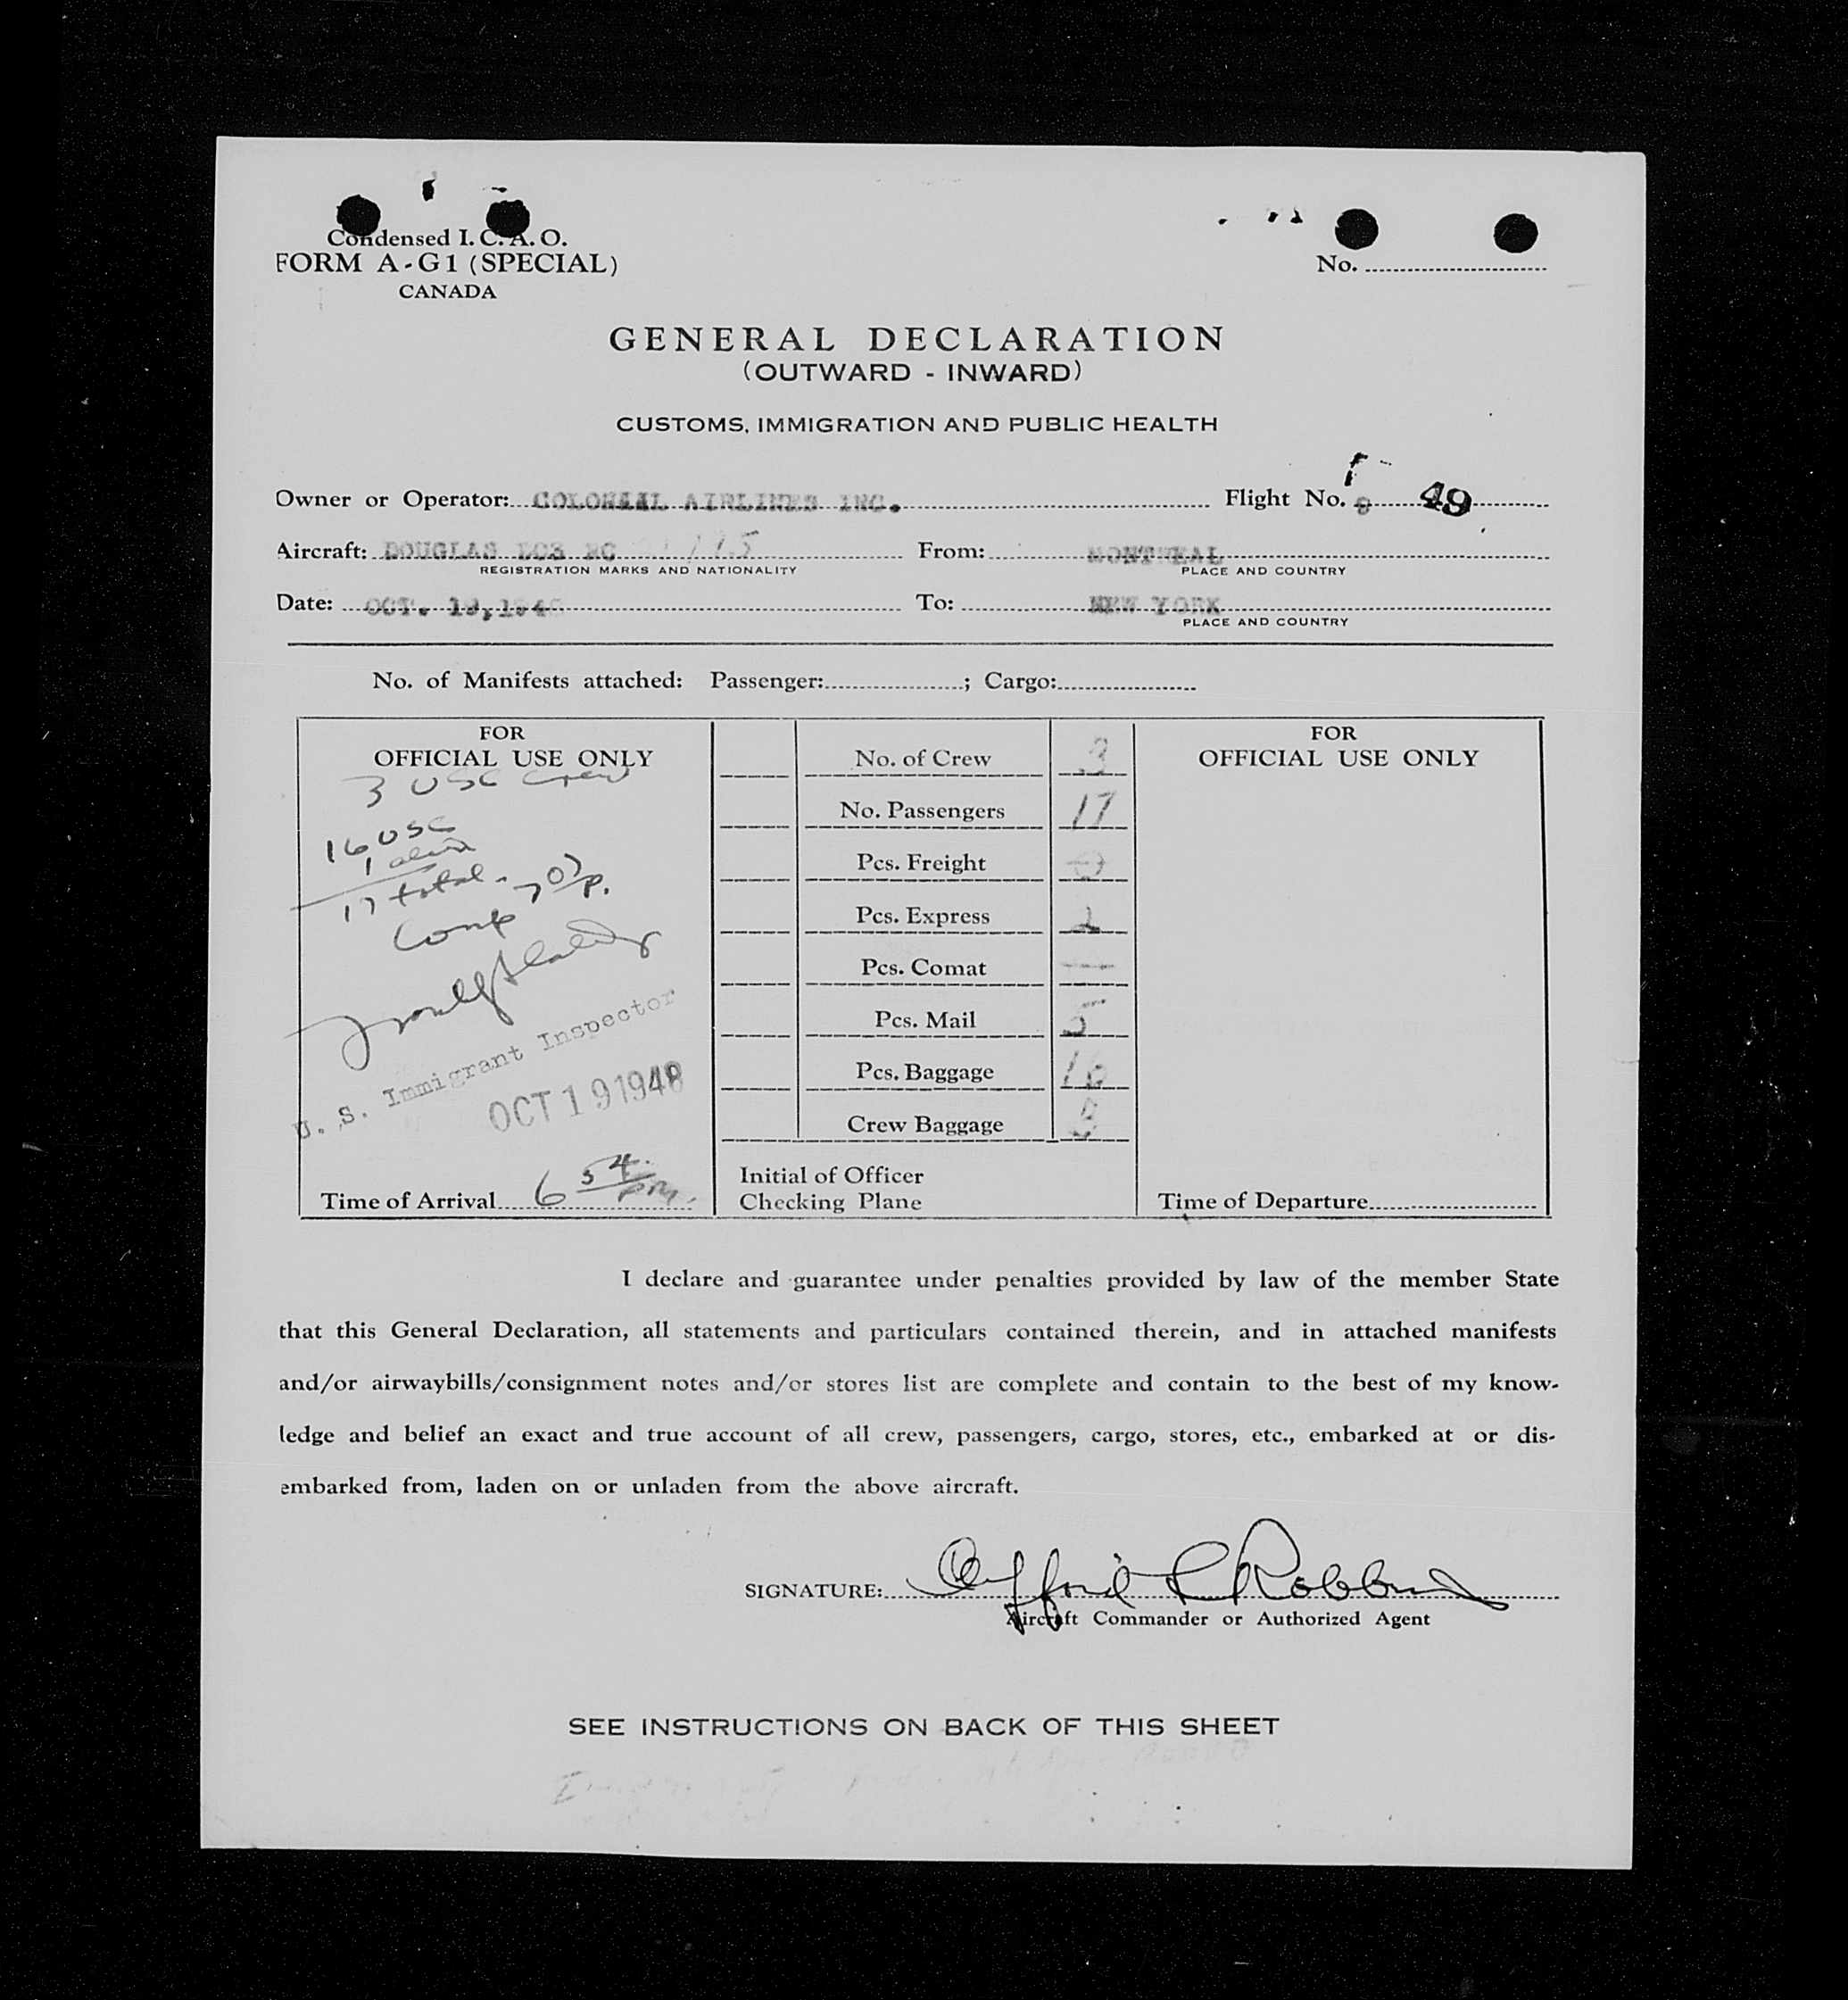 Condensed I. C. A. O.
FORM A-G1 (SPECIAL)
CANADA
No.
GENERAL DECLARATION
(OUTWARD - INWARD)
CUSTOMS, IMMIGRATION AND PUBLIC HEALTH
Owner or Operator: COLONIAL AIRLINES INC. Flight No. 8 49
Aircraft: DOUGLAS DC3 NC From: MONTREAL
REGISTRATION MARKS AND NATIONALITY PLACE AND COUNTRY
Date: OCT. 19, 1948 To: NEW YORK
PLACE AND COUNTRY
No. of Manifests attached: Passenger: ; Cargo:
FOR
OFFICIAL USE ONLY
3 USC Crew
16 USC
1 alien
17 total.
Comp 7 07 P.
U. S. Immigrant Inspector
OCT 19 1948
Time of Arrival 6 54 PM.
No. of Crew 3
No. Passengers 17
Pcs. Freight 0
Pcs. Express 2
Pcs. Comat —
Pcs. Mail 5
Pcs. Baggage 16
Crew Baggage 3
Initial of Officer
Checking Plane
FOR
OFFICIAL USE ONLY
Time of Departure
I declare and guarantee under penalties provided by law of the member State
that this General Declaration, all statements and particulars contained therein, and in attached manifests
and/or airwaybills/consignment notes and/or stores list are complete and contain to the best of my know-
ledge and belief an exact and true account of all crew, passengers, cargo, stores, etc., embarked at or dis-
embarked from, laden on or unladen from the above aircraft.
SIGNATURE: Clifford L Robbins
Aircraft Commander or Authorized Agent
SEE INSTRUCTIONS ON BACK OF THIS SHEET